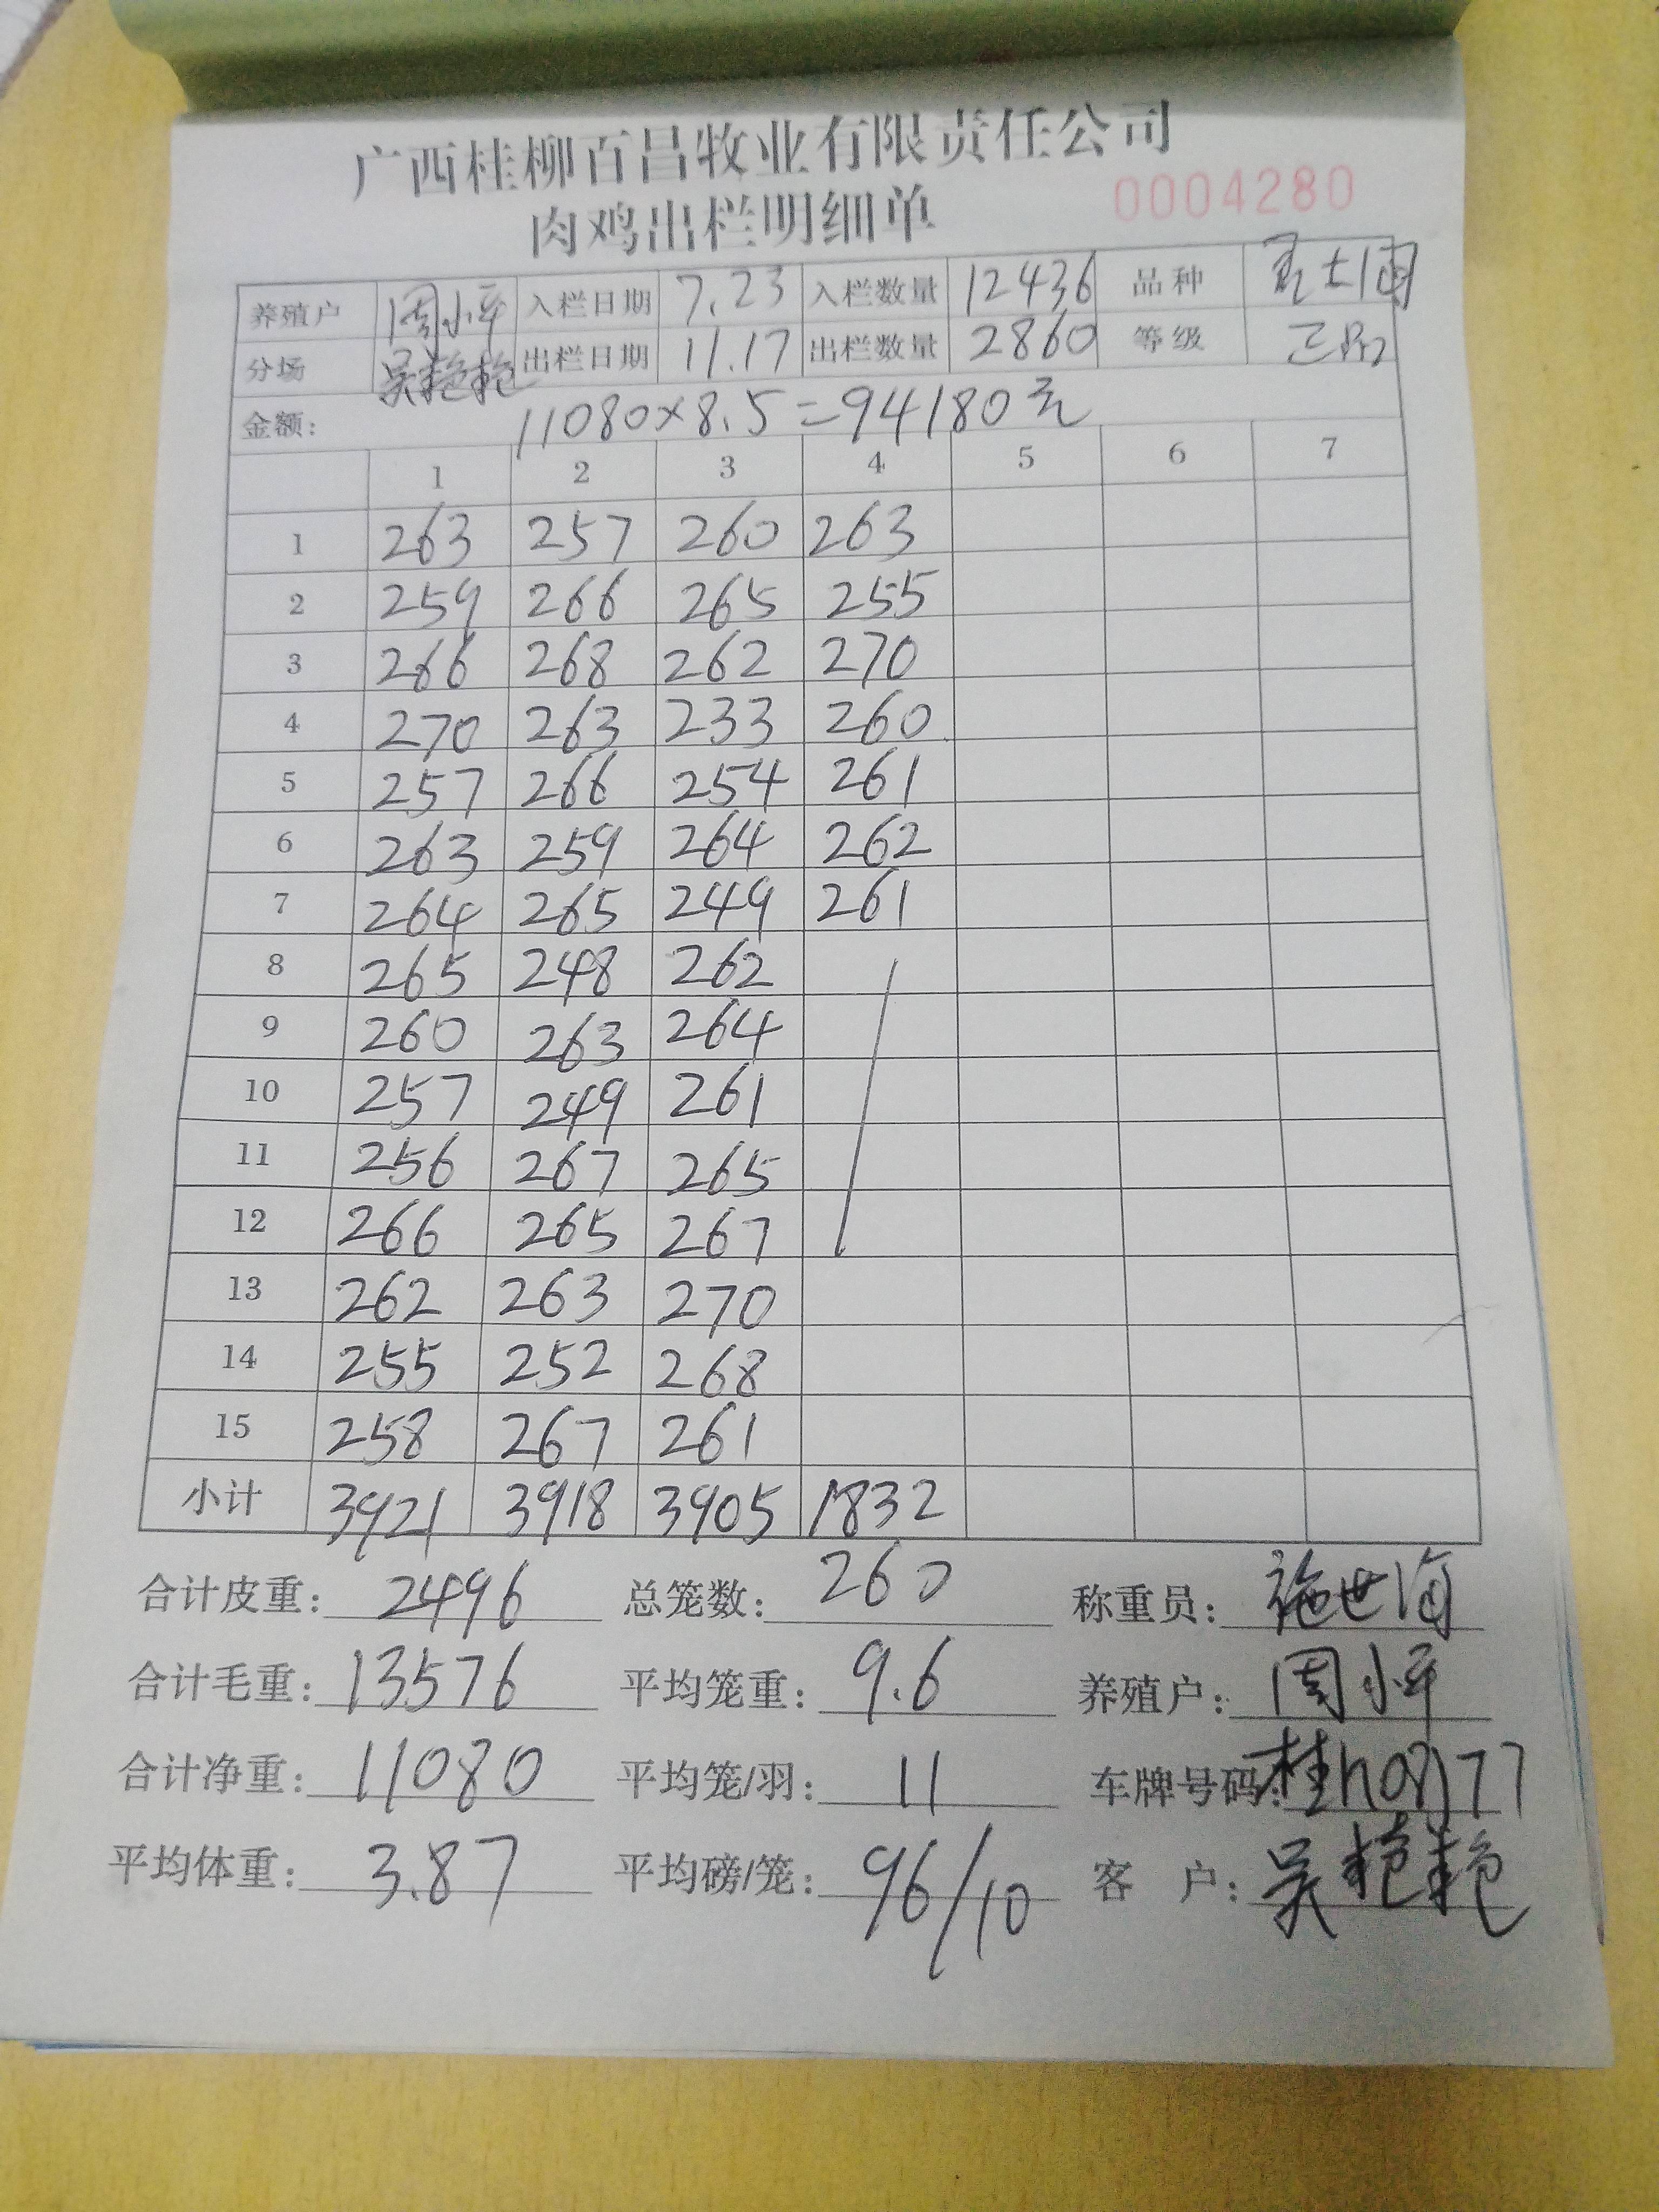 广西桂柳百昌牧业有限责任公司
肉鸡出栏明细单 0004280
养殖户 周小平 入栏日期 7.23 入栏数量 12436 品种
分场 吴艳艳 出栏日期 11.17 出栏数量 2860 等级 正品
金额: 11080×8.5=94180元
1 2 3 4 5 6 7
1 263 257 260 263
2 259 266 265 255
3 266 268 262 270
4 270 263 233 260
5 257 266 254 261
6 263 259 264 262
7 264 265 249 261
8 265 248 262
9 260 263 264
10 257 249 261
11 256 267 265
12 266 265 267
13 262 263 270
14 255 252 268
15 258 267 261
小计 3921 3918 3905 1832
合计皮重: 2496 总笼数: 260 称重员: 施世海
合计毛重: 13576 平均笼重: 9.6 养殖户: 周小平
合计净重: 11080 平均笼/羽: 11 车牌号码:
平均体重: 3.87 平均磅/笼: 96/10 客 户: 吴艳艳